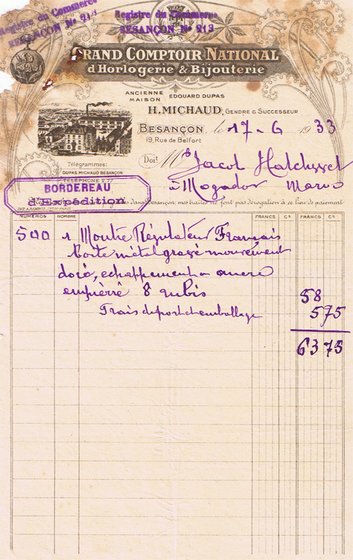 Registre du Commerce
BESANÇON No 213
Registre du Commerce
BESANÇON No 213
GRAND COMPTOIR NATIONAL
d'Horlogerie & Bijouterie
ANCIENNE MAISON EDOUARD DUPAS
H. MICHAUD, GENDRE & SUCCESSEUR
BESANÇON, le 17-6 1933
19, Rue de Belfort
Télégrammes:
DUPAS MICHAUD BESANÇON
TÉLÉPHONE 2.77
Doit Mr Jacob
à Mogador Maroc
BORDEREAU
d'Expédition
NUMÉROS NOMBRE FRANCS Cs FRANCS Cs
500 1 Montre Régulateur Français
boite métal gravé mouvement
doré, echappement a ancre
empierré 8 rubis 58
Frais de port et emballage 575
6375